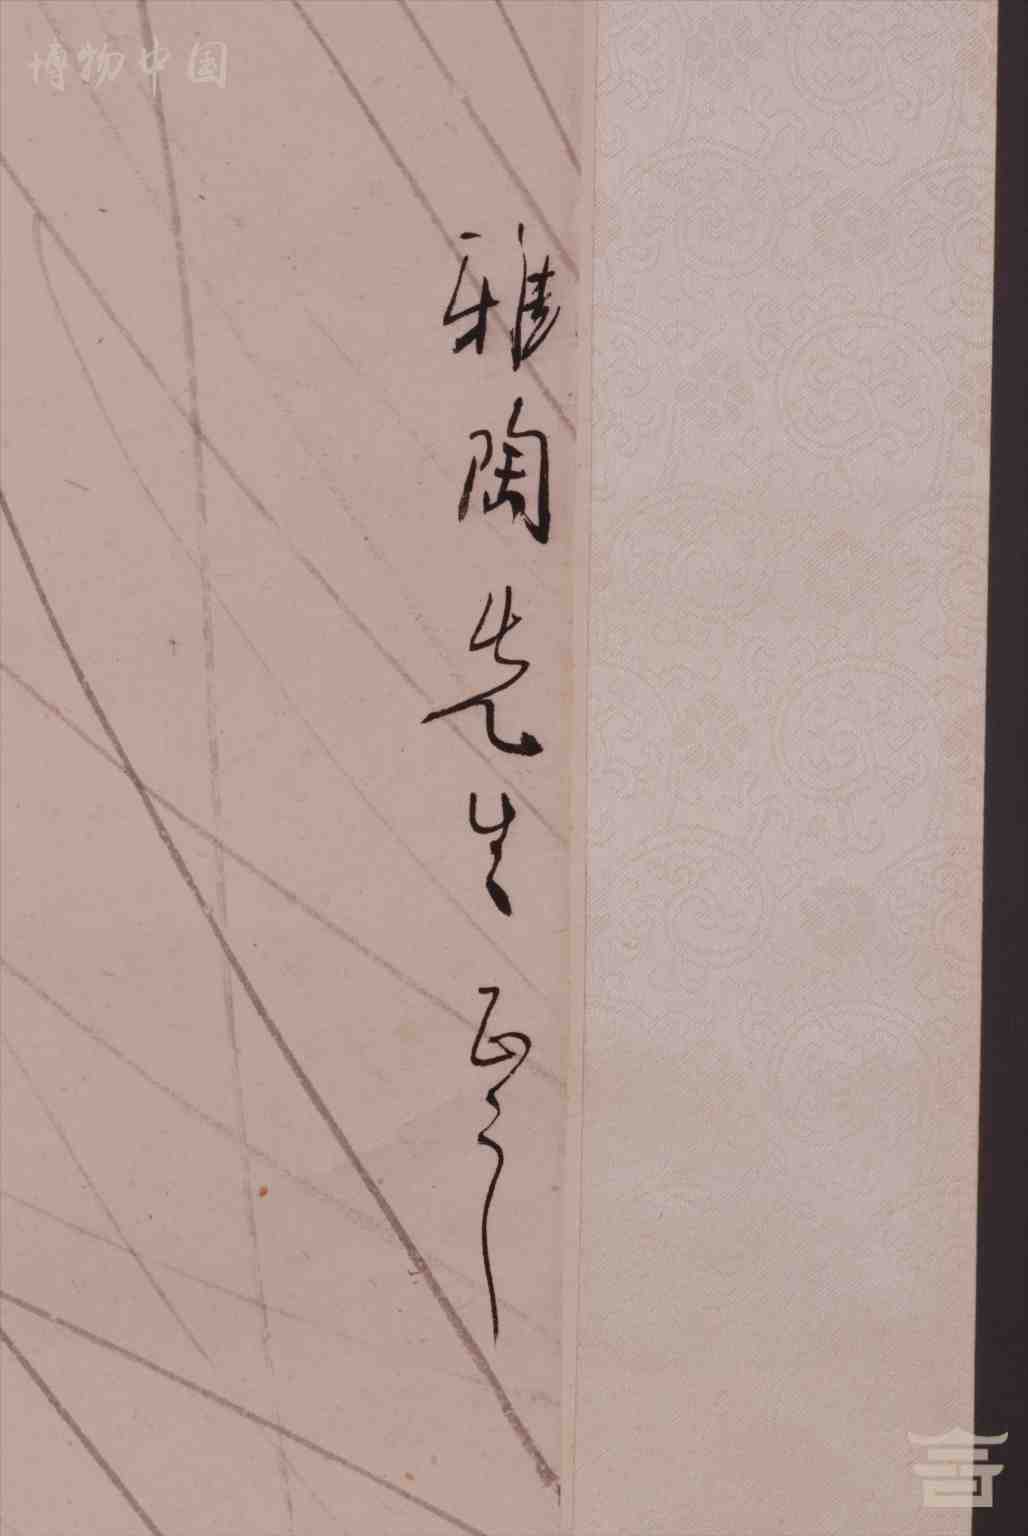 博物中国
雅陶先生正之